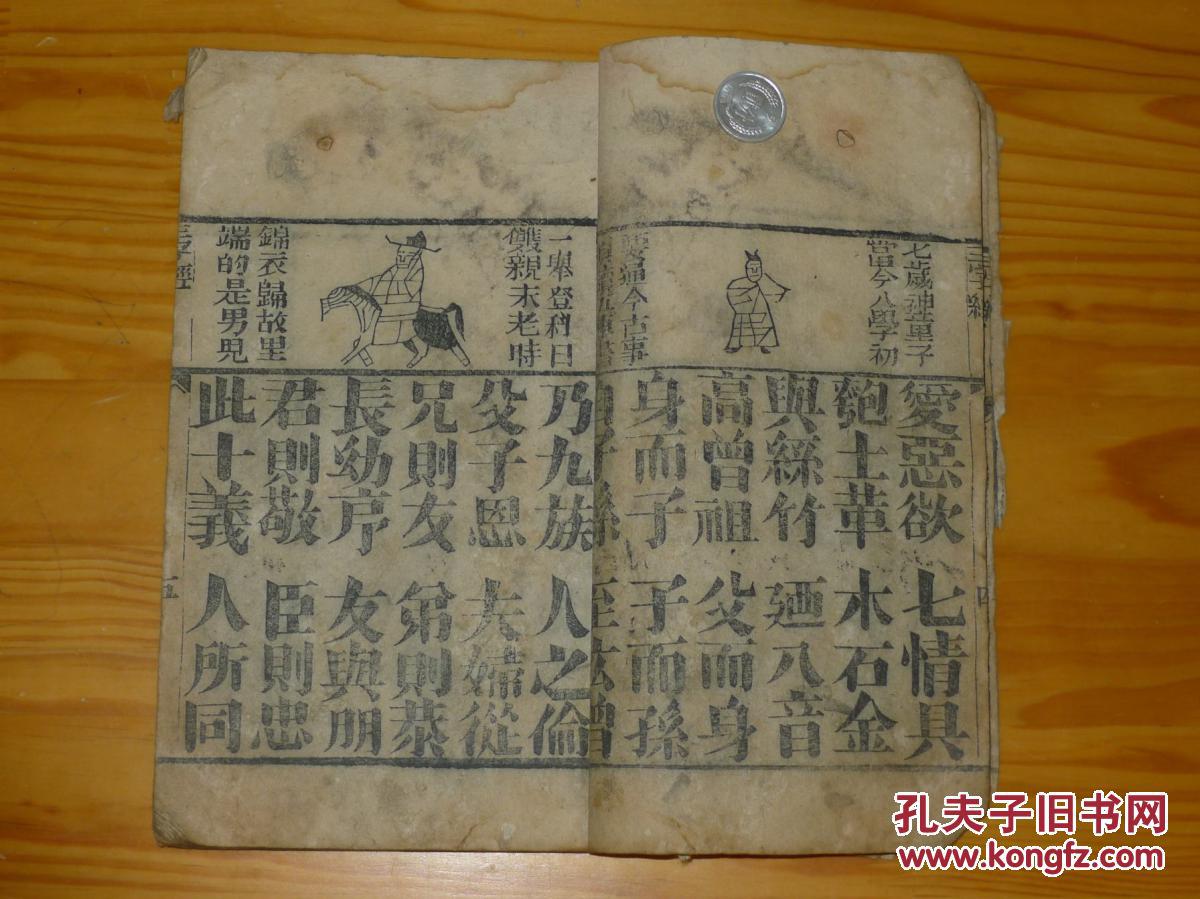 三字經
七歲神童子
當今入學初
愛惡欲 七情具
匏土革 木石金
與絲竹 廼八音
高曾祖 父而身
身而子 子而孫
孫 至玄曾
四
一舉登科日
雙親未老時
錦衣歸故里
端的是男兒
三字經
乃九族 人之倫
父子恩 夫婦從
兄則友 弟則恭
長幼序 友與朋
君則敬 臣則忠
此十義 人所同
五
孔夫子旧书网
www.kongfz.com